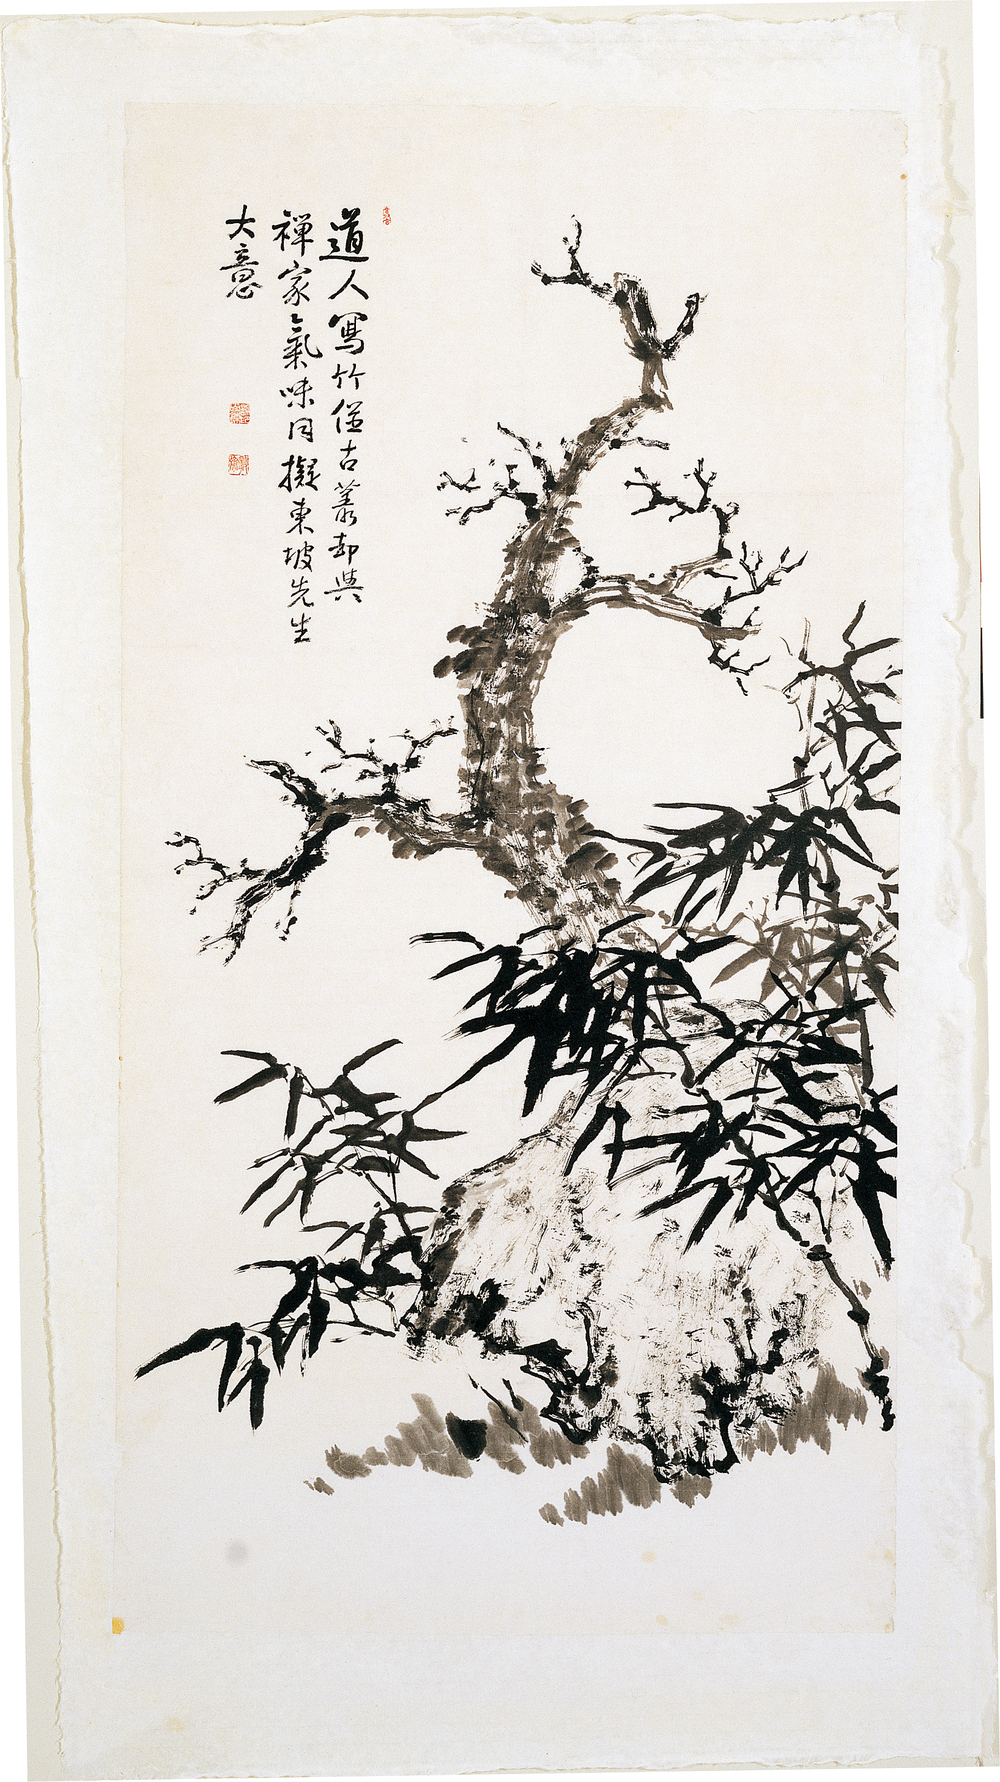 道人寫竹古叢却與
禪家氣味同擬東坡先生
大意